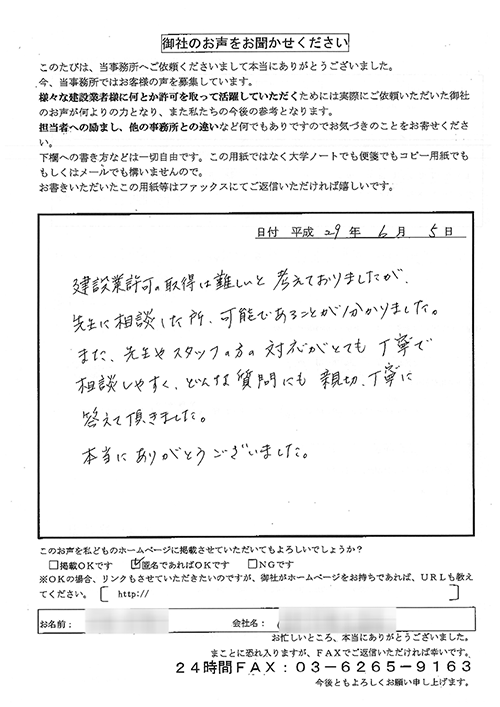 御社のお声をお聞かせください
このたびは、当事務所へご依頼くださいまして本当にありがとうございました。
今、当事務所ではお客様の声を募集しています。
様々な建設業者様に何とか許可を取って活躍していただくためには実際にご依頼いただいた御社
のお声が何よりの力となり、また私たちの今後の参考となります。
担当者への励まし、他の事務所との違いなど何でもありですのでお気づきのことをお寄せくださ
い。
下欄への書き方などは一切自由です。この用紙ではなく大学ノートでも便箋でもコピー用紙でも
もしくはメールでも構いませんので。
お書きいただいたこの用紙等はファックスにてご返信いただければ嬉しいです。
日付 平成 29 年 6 月 5 日
建設業許可の取得は難しいと考えておりましたが、
先生に相談した所、可能であることが分かりました。
また、先生やスタッフの方の対応がとても丁寧で
相談しやすく、どんな質問にも親切、丁寧に
答えて頂きました。
本当にありがとうございました。
このお声を私どものホームページに掲載させていただいてもよろしいでしょうか?
□掲載OKです ☑匿名であればOKです □NGです
※OKの場合、リンクもさせていただきたいのですが、御社がホームページをお持ちであれば、URLも教え
てください。[ http:// ]
お名前: 会社名:
お忙しいところ、本当にありがとうございました。
まことに恐れ入りますが、FAXでご返信いただければ幸いです。
24時間FAX:03-6265-9163
今後ともよろしくお願い申し上げます。